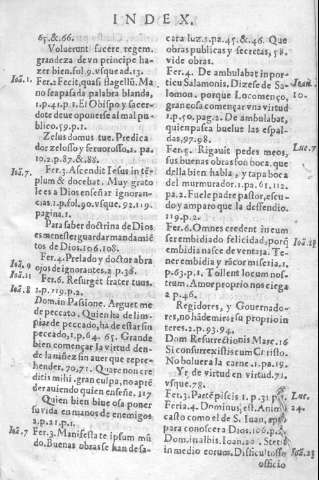 INDEX.
65.&.66.
Voluerunt facere regem.
grandeza de vn principe ha-
zer bien. fol.9. vsque ad.13.
Ioã.2.
Fer.2. Fecit, quasi flagellũ. Ma
no sea pasada palabra blanda,
1.p.41.p.1. El Obispo y sacer-
dote deue oponerse al mal pu-
blico.59.p.1.
Zelus domus tuæ. Predica-
dor zeloso y feruoroso.2.pa.
10.2.p.87.&.88.
Ioã.7.
Fer.3. Ascendit Iesus in tẽ-
plum & docebat. Muy grato
le es a Dios enseñar ignoran-
cias.1.p.fol.90. vsque, 92.119.
pagina.1.
Para saber doctrina de Dios
es menester guardar mandamiẽ
tos de Dios.106.108.
Ioã.9.
Fer.4. Prelado y doctor abra
ojos de ignorantes.2.p.36.
Ioã.11
Fer.6. Resurget frater tuus.
Ioã.8
2.p.119.p.2.
Dom. in Passione. Arguet me
de peccato. Quien ha de lim-
piar de peccado, ha de estar sin
peccado, 1.p.64. 65. Grande
bien començar la virtud den-
de la niñez sin auer que repre-
hender.70.71. Quare non cre
ditis mihi. gran culpa, no aprẽ
der auiendo quien enseñe.117
Quien bien biue osa poner
su vida en manos de enemigos
2.p.21.p.1.
Ioã.7
Fer.3. Manifesta te ipsum mũ
do. Buenas obras se han de sa-
car a luz.1.pa.45.&.46. Que
obras publicas y secretas, 58.
vide obras.
Fer.4. De ambulabat in por-
ticu Salamonis, Dizese de Sa-
lomon. porque Lo començo,
gran cosa començar vna virtud
1.p.50, pag.2. De ambulabat,
quien pasea buelue las espal-
das, 97.98.
Luc.7
Fer.5. Rigauit pedes meos,
sus buenas obras son boca. que
della bien habla, y tapa boca
del murmurador.1.pa.61.112.
pa.2. Fuele padre pastor, escu-
do y amparo que la deffendio.
119.p.2.
Fer.6. Omnes credent in eum
ser embidiado felicidad, porq̃
embidia nasce de ventaja. Te-
ner embidia y rãcor miseria, 1.
p.63.p.1. Tollent locum nos-
trum. Amor proprio nos ciega
2.p.46.
Regidores, y Gouernado-
res, no hã de mirar su proprio in
teres.2.p.93.94.
Dom Resurrectionis Marc.16
Si consurrexistis cum Cristo.
No boluer a la carne.1.pa.19.
Yr de virtud en virtud.71.
vsque.78.
Luc.
24.
Feria.4. Dominus, est. Animo
casto como el de S. Iuan,
para conoscer a Dios.106.
Dom. in albis. Ioan.20. Stetit
in medio eorum.
ostico